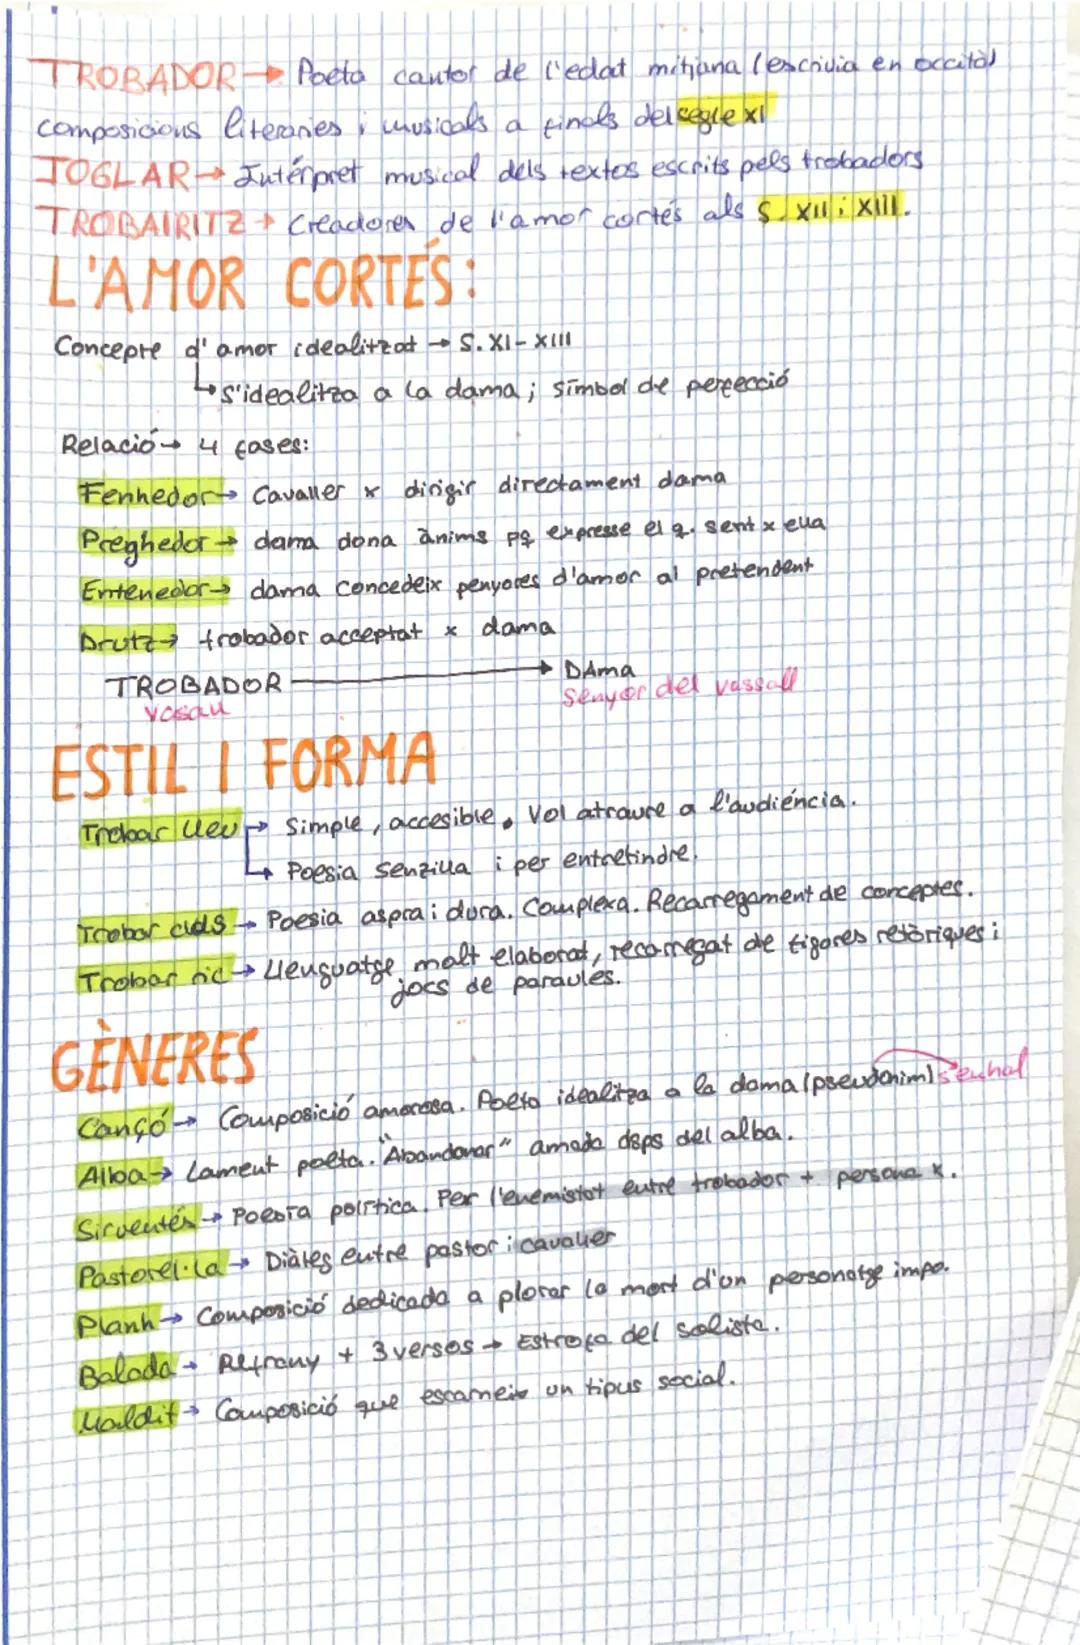 TROBADOR → Poeta cantor de l'edat mitjana (escrivia en occità)
composicions literaries i musicals a finals del segle XI
JOGLAR → Intérpret musical dels textos escrits pels trobadors
TROBAIRITZ → Creadores de l'amor cortés als S. XII i XIII.
L'AMOR CORTÉS:
Concepte d'amor idealitzat → S. XI - XIII
↳ s'idealitza a la dama; símbol de perfecció
Relació → 4 fases:
Fenhedor → Cavaller x dirigir directament dama
Preghedor → dama dona ànims pq expresse el q. sent x ella
Entenedor → dama concedeix penyores d'amor al pretendent
Drutz → trobador acceptat x dama
TROBADOR → DAma
vasall senyor del vassall
ESTIL I FORMA
Trobar lleu → Simple, accesible. Vol atraure a l'audiéncia.
↳ Poesia senzilla i per entretindre.
Trobar clus → Poesia aspra i dura. Complexa. Recarregament de conceptes.
Trobar ric → Llenguatge molt elaborat, recarregat de figores retòriques i
jocs de paraules.
GÈNERES
Cançó → Composició amorosa. Poeta idealitza a la dama (pseudonim) senhal
Alba → Lament poeta. "Abandonar" amada dsps del alba.
Sirventés → Poesia política. Per l'enemistat entre trobador + persona x.
Pastorel·la → Diàleg entre pastor i cavaller
Planh → Composició dedicada a plorar la mort d'un personatge impo.
Balada → Refrany + 3 versos → Estrofa del solista.
Maldit → Composició que escarneix un tipus social.